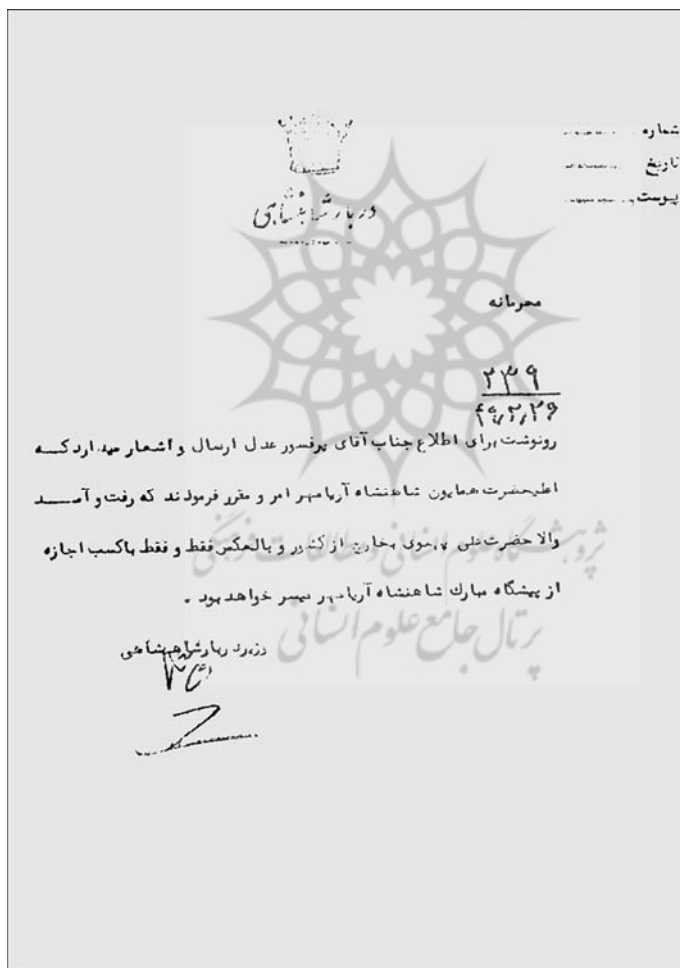 شماره
تاریخ
پیوست
دربار شاهنشاهی
محرمانه
۲۳۹
۴۹,۲,۲۶
رونوشت برای اطلاع جناب آقای پرفسور عدل ارسال و اشعار میدارد کــه
اعلیحضرت همایون شاهنشاه آریامهر امر و مقرر فرمودند که رفت و آمــد
والا حضرت علی پهلوی بخارج از کشور و بالعکس فقط و فقط باکسب اجازه
از پیشگاه مبارك شاهنشاه آریامهر میسر خواهد بود .
وزیر دربار شاهنشاهی
پژوهشگاه علوم انسانی و مطالعات فرهنگی
پرتال جامع علوم انسانی